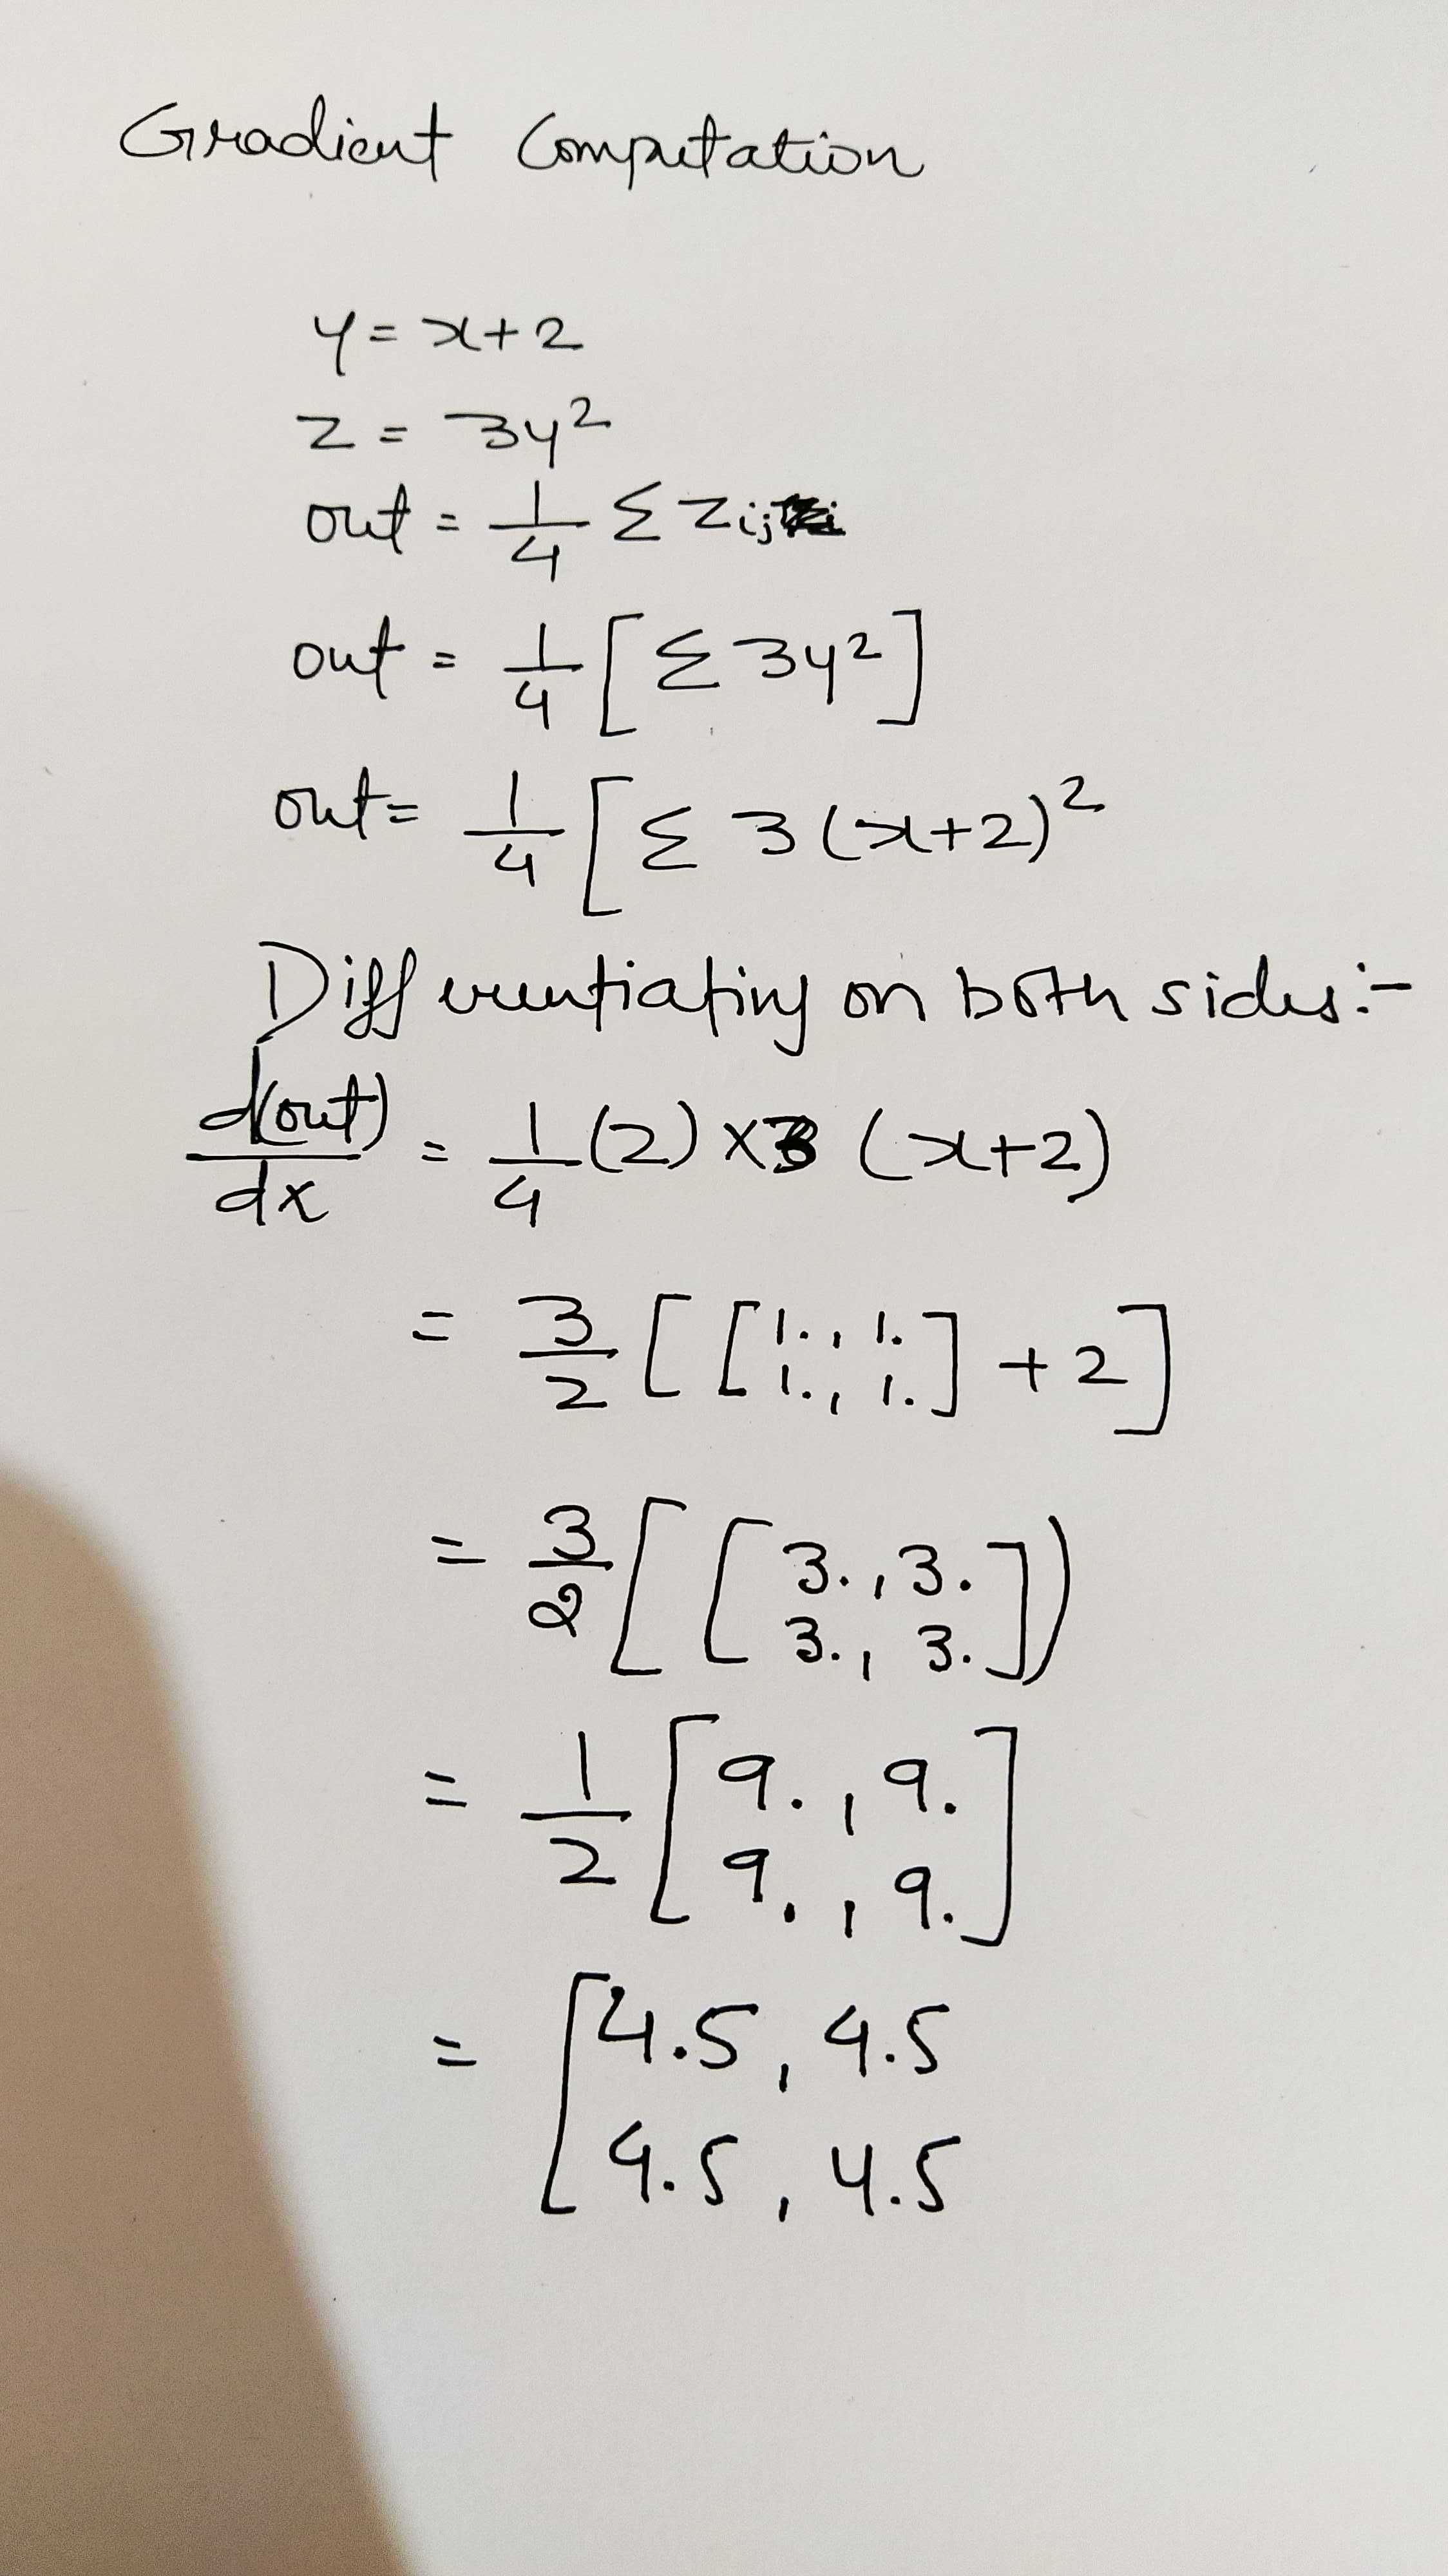 Gradient Computation
y = x+2
z = 3y²
out = 1/4 Σ zij
out = 1/4 [Σ 3y²]
out = 1/4 [Σ 3(x+2)²
Differentiating on both sides:-
d(out)/dx = 1/4 (2) x3 (x+2)
= 3/2 [ [1., 1.
1., 1.] + 2]
= 3/2 [ [3., 3.
3., 3.])
= 1/2 [9., 9.
9., 9.]
= [4.5, 4.5
4.5, 4.5